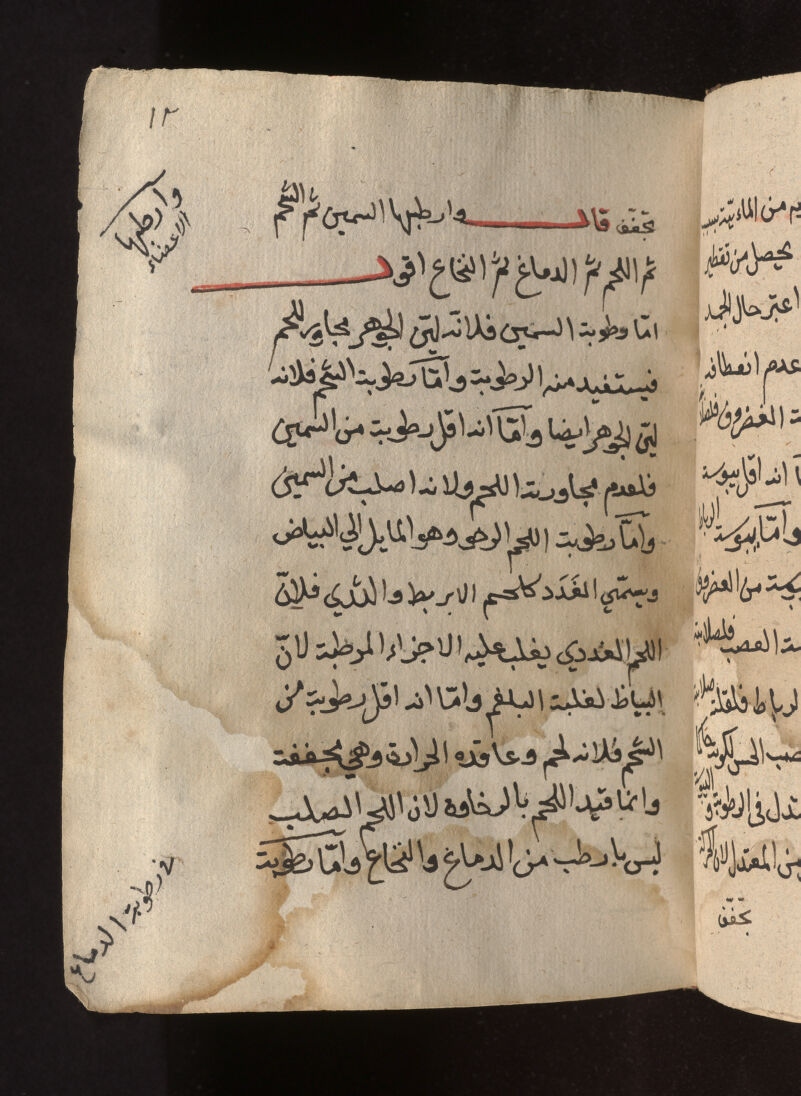 ١٢
وارطبها
الاعضاء
تجفّف قال وارطبها السمين ثمّ الشحم
ثم اللحم ثمّ الدماغ ثمّ النخاع اقول
امّا رطوبة السمين فلانّه ليّن الجوهر مجاور للحم
فيستفيد منه الرطوبة وأمّا رطوبة الشحم فلانه
ليّن الجوهر ايضا وأمّا انه اقل رطوبة من السمين
فلعدم مجاورته اللحم ولانه اصلب من السمين
وأمّا رطوبة اللحم الرخو وهو المايل الي البياض
ويسمّي الغَدَد كلحم الابربط والثدي فلانّ
اللحم الغددي يغلب عليه الاجزاء المرطبة لانّ
البياظ لغلبة البلغم وامّا انه اقل رطوبة من
الشحم فلانه لحم وعاقده الحرارة وهي مجففة
وانما قيد اللحم بالرخاوه لان اللحم الصلب
ليس بارطب من الدماغ والنخاع وأمّا رطوبة
في رطوبة الدماغ
يم من المائيّة بسبب
يحصل من تقطير
اعتبر حال الجمد
عدم انعطافه
الغضروف
انه اقل يبوسة
وأمّا يبوسة الرباط
من الغضروف
العصب فلصلابة
لرباط فلقلة صلابة
الحس لكونه
في الرطوبة
من المعتدل لان
تجفّف